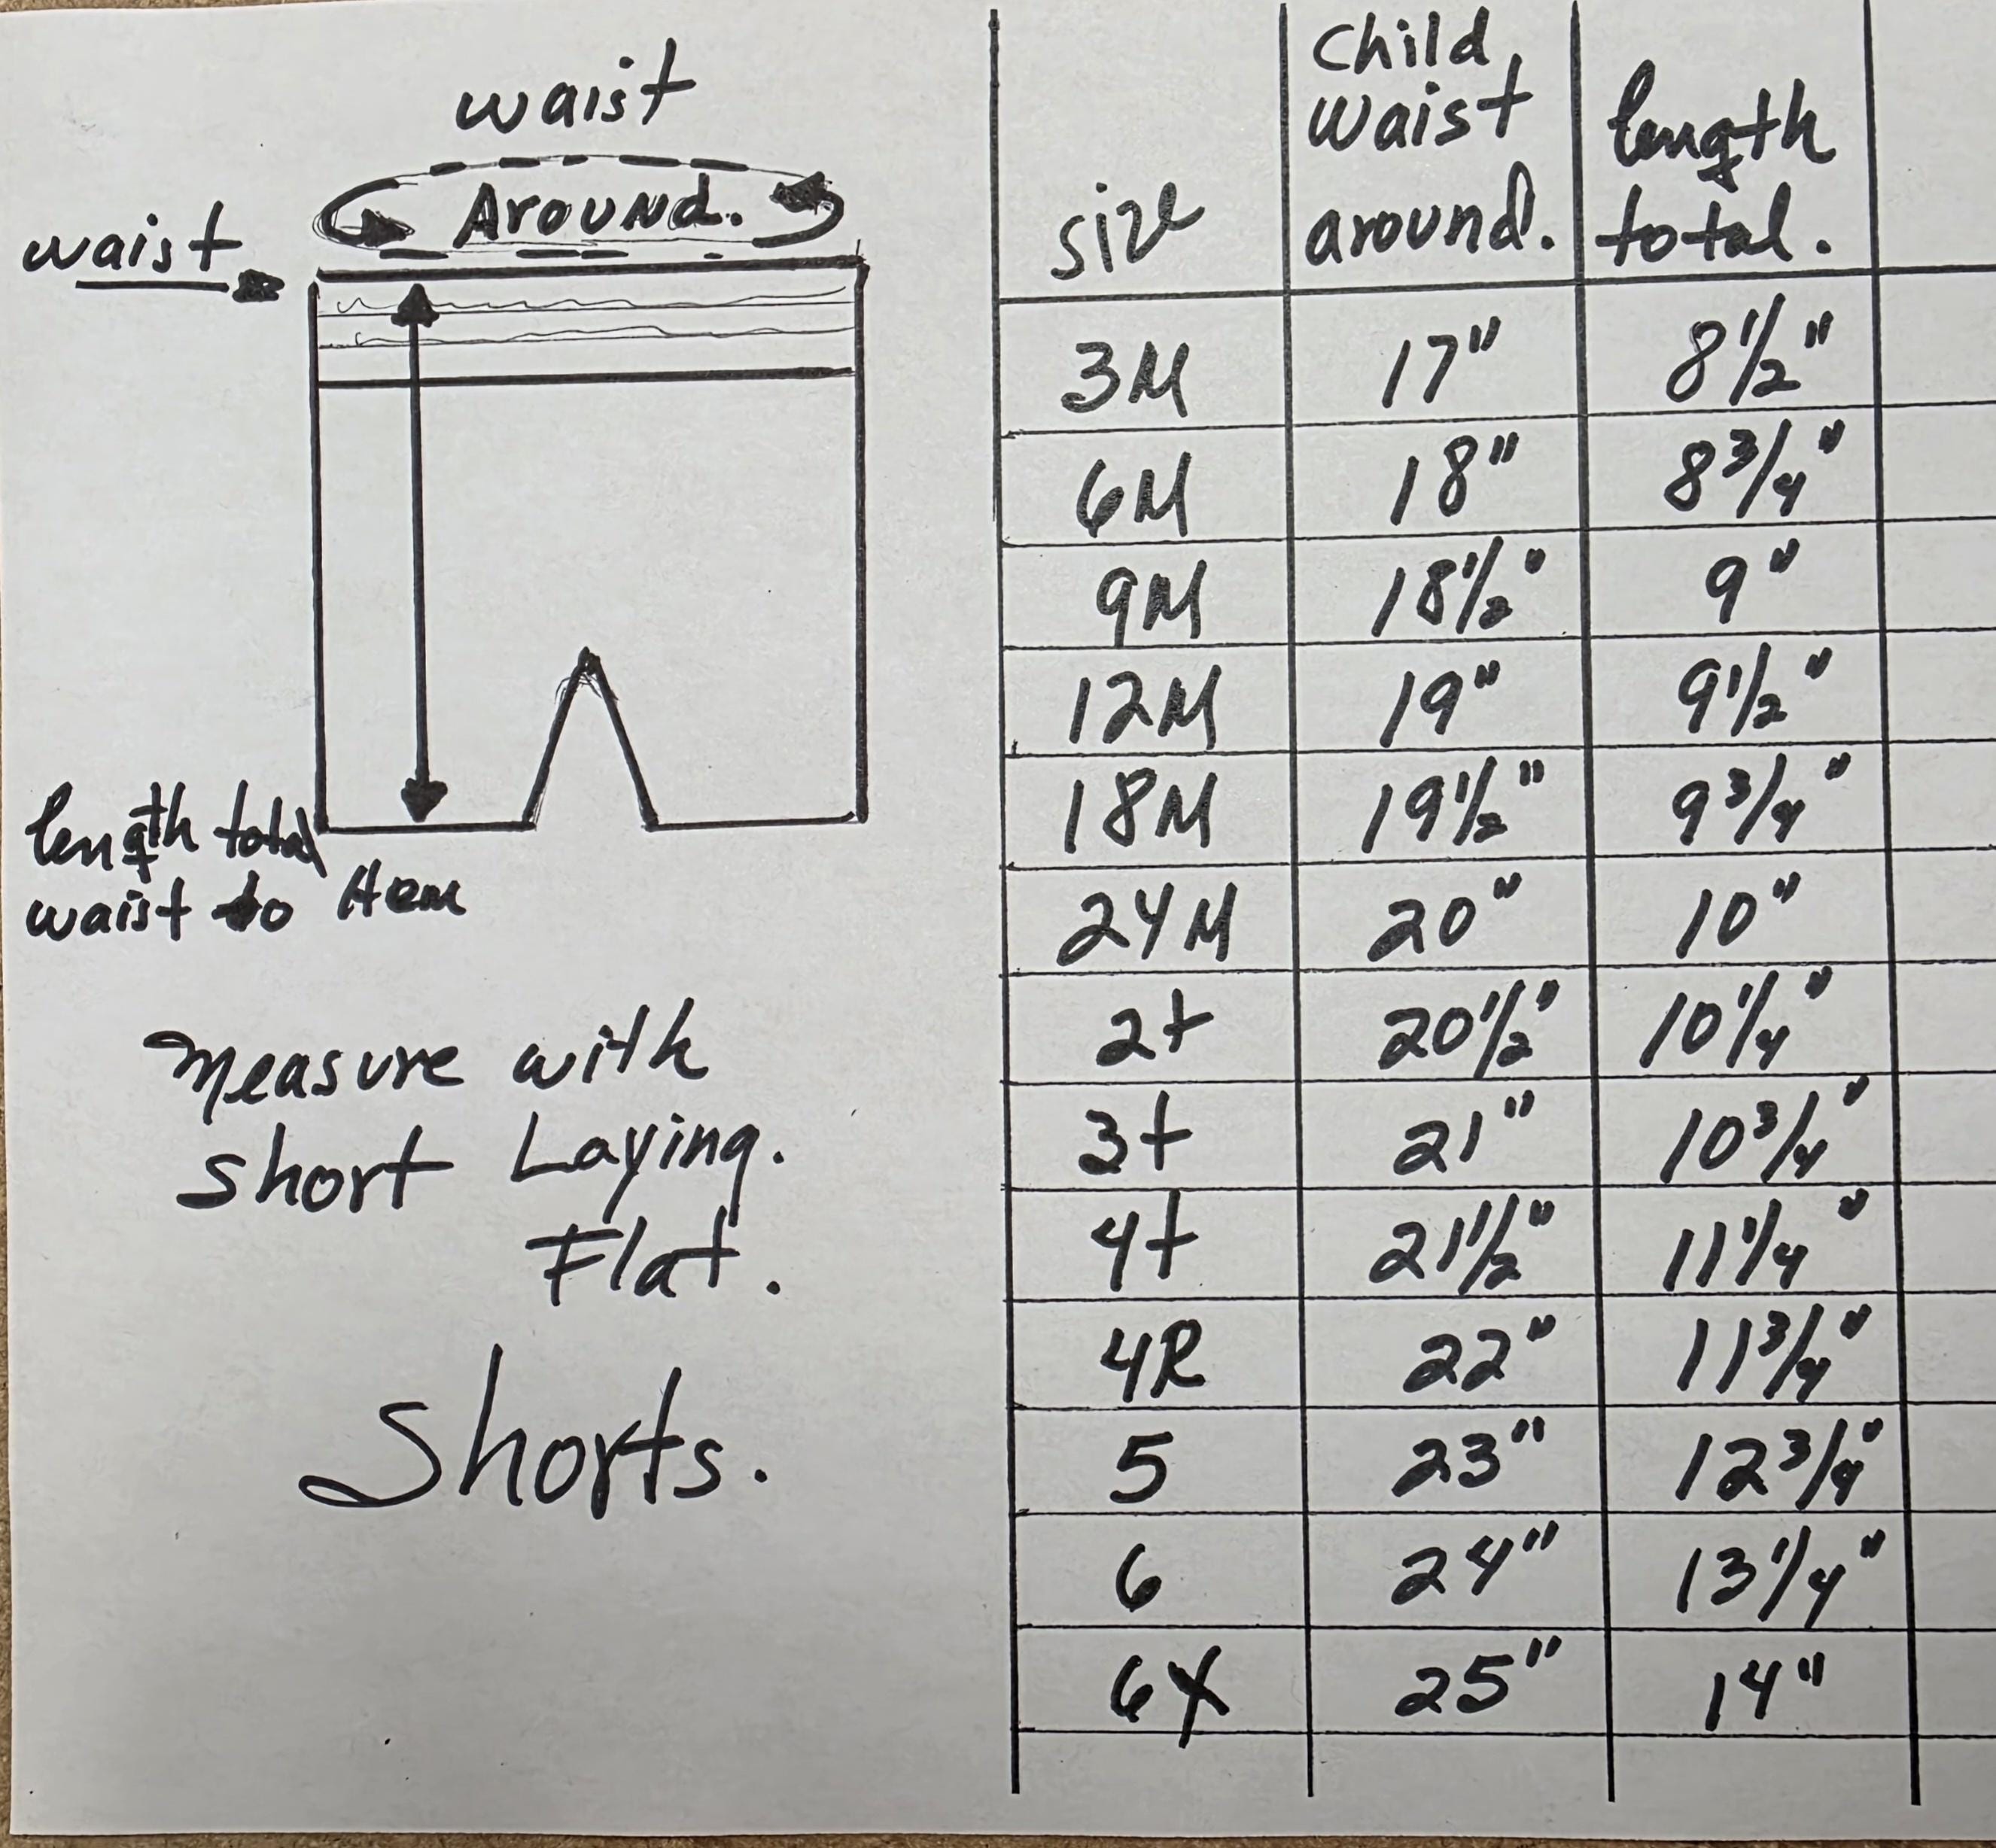 waist
Around.
waist
length total
waist to Hem
Measure with
short Laying.
Flat.
Shorts.
size | Child waist around. | length total.
3M | 17" | 8 1/2"
6M | 18" | 8 3/4"
9M | 18 1/2" | 9"
12M | 19" | 9 1/2"
18M | 19 1/2" | 9 3/4"
24M | 20" | 10"
2t | 20 1/2" | 10 1/4"
3t | 21" | 10 3/4"
4t | 21 1/2" | 11 1/4"
4R | 22" | 11 3/4"
5 | 23" | 12 3/4"
6 | 24" | 13 1/4"
6X | 25" | 14"